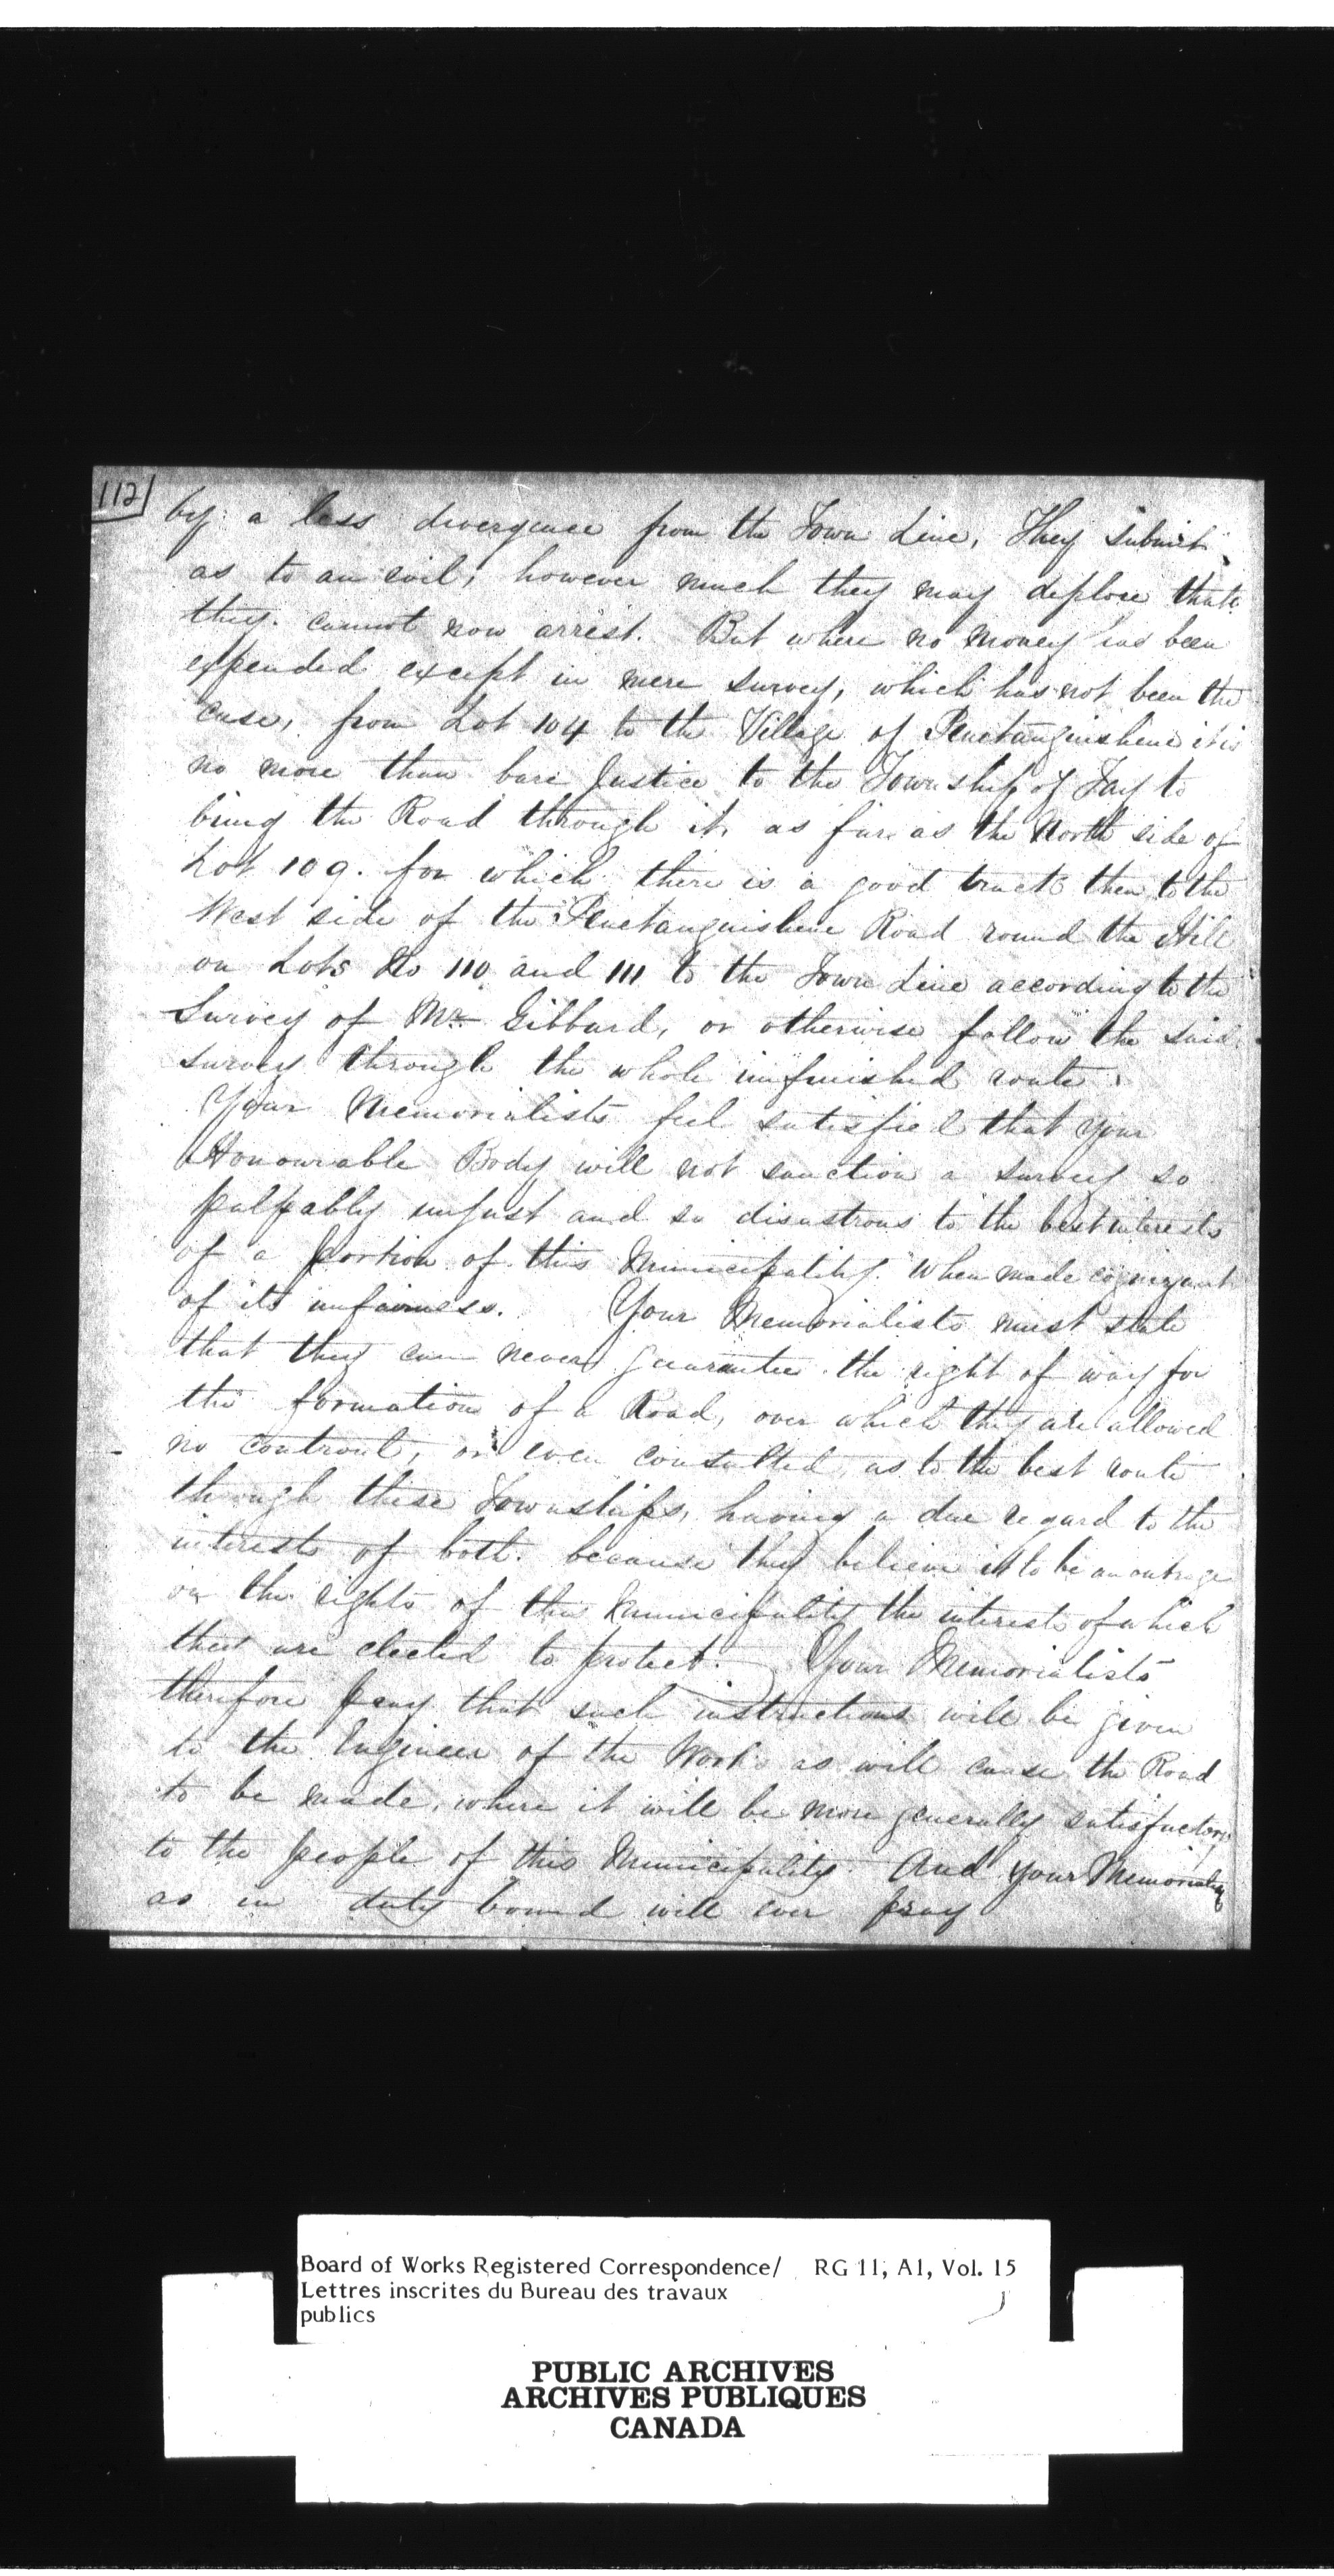 112
by a less divergence from the Town Line, They submit
as to an evil, however much they may deplore that
they cannot now arrest. But where no money has been
expended except in mere survey, which has not been the
case, from Lot 104 to the Village of Penetanguishene it is
no more than bare Justice to the Township of Tay to
bring the Road through it, as far as the North side of
Lot 109. for which there is a good track then to the
West side of the Penetanguishene Road round the Hill
on Lots No 110 and 111 to the Town Line according to the
Survey of Mr Gibbard, or otherwise follow the said
survey through the whole unfinished route.
Your Memorialists feel satisfied that your
Honourable Body will not sanction a survey so
palpably unjust and so disastrous to the best interests
of a portion of this Municipality. When made cognizant
of its unfairness. Your Memorialists must state
that they can never guarantee the right of way for
the formation of a Road, over which they are allowed
no controul, or even consulted, as to the best route
through these Townships, having a due regard to the
interests of both. because they believe it to be an outrage
on the rights of the Municipality the interests of which
they are elected to protect. Your Memorialists
therefore pray that such instructions will be given
to the Engineer of the Work as will cause the Road
to be made, where it will be more generally satisfactory
to the people of this Municipality. And your Memorialists
as in duty bound will ever pray
Board of Works Registered Correspondence/ RG 11, A1, Vol. 15
Lettres inscrites du Bureau des travaux
publics
PUBLIC ARCHIVES
ARCHIVES PUBLIQUES
CANADA